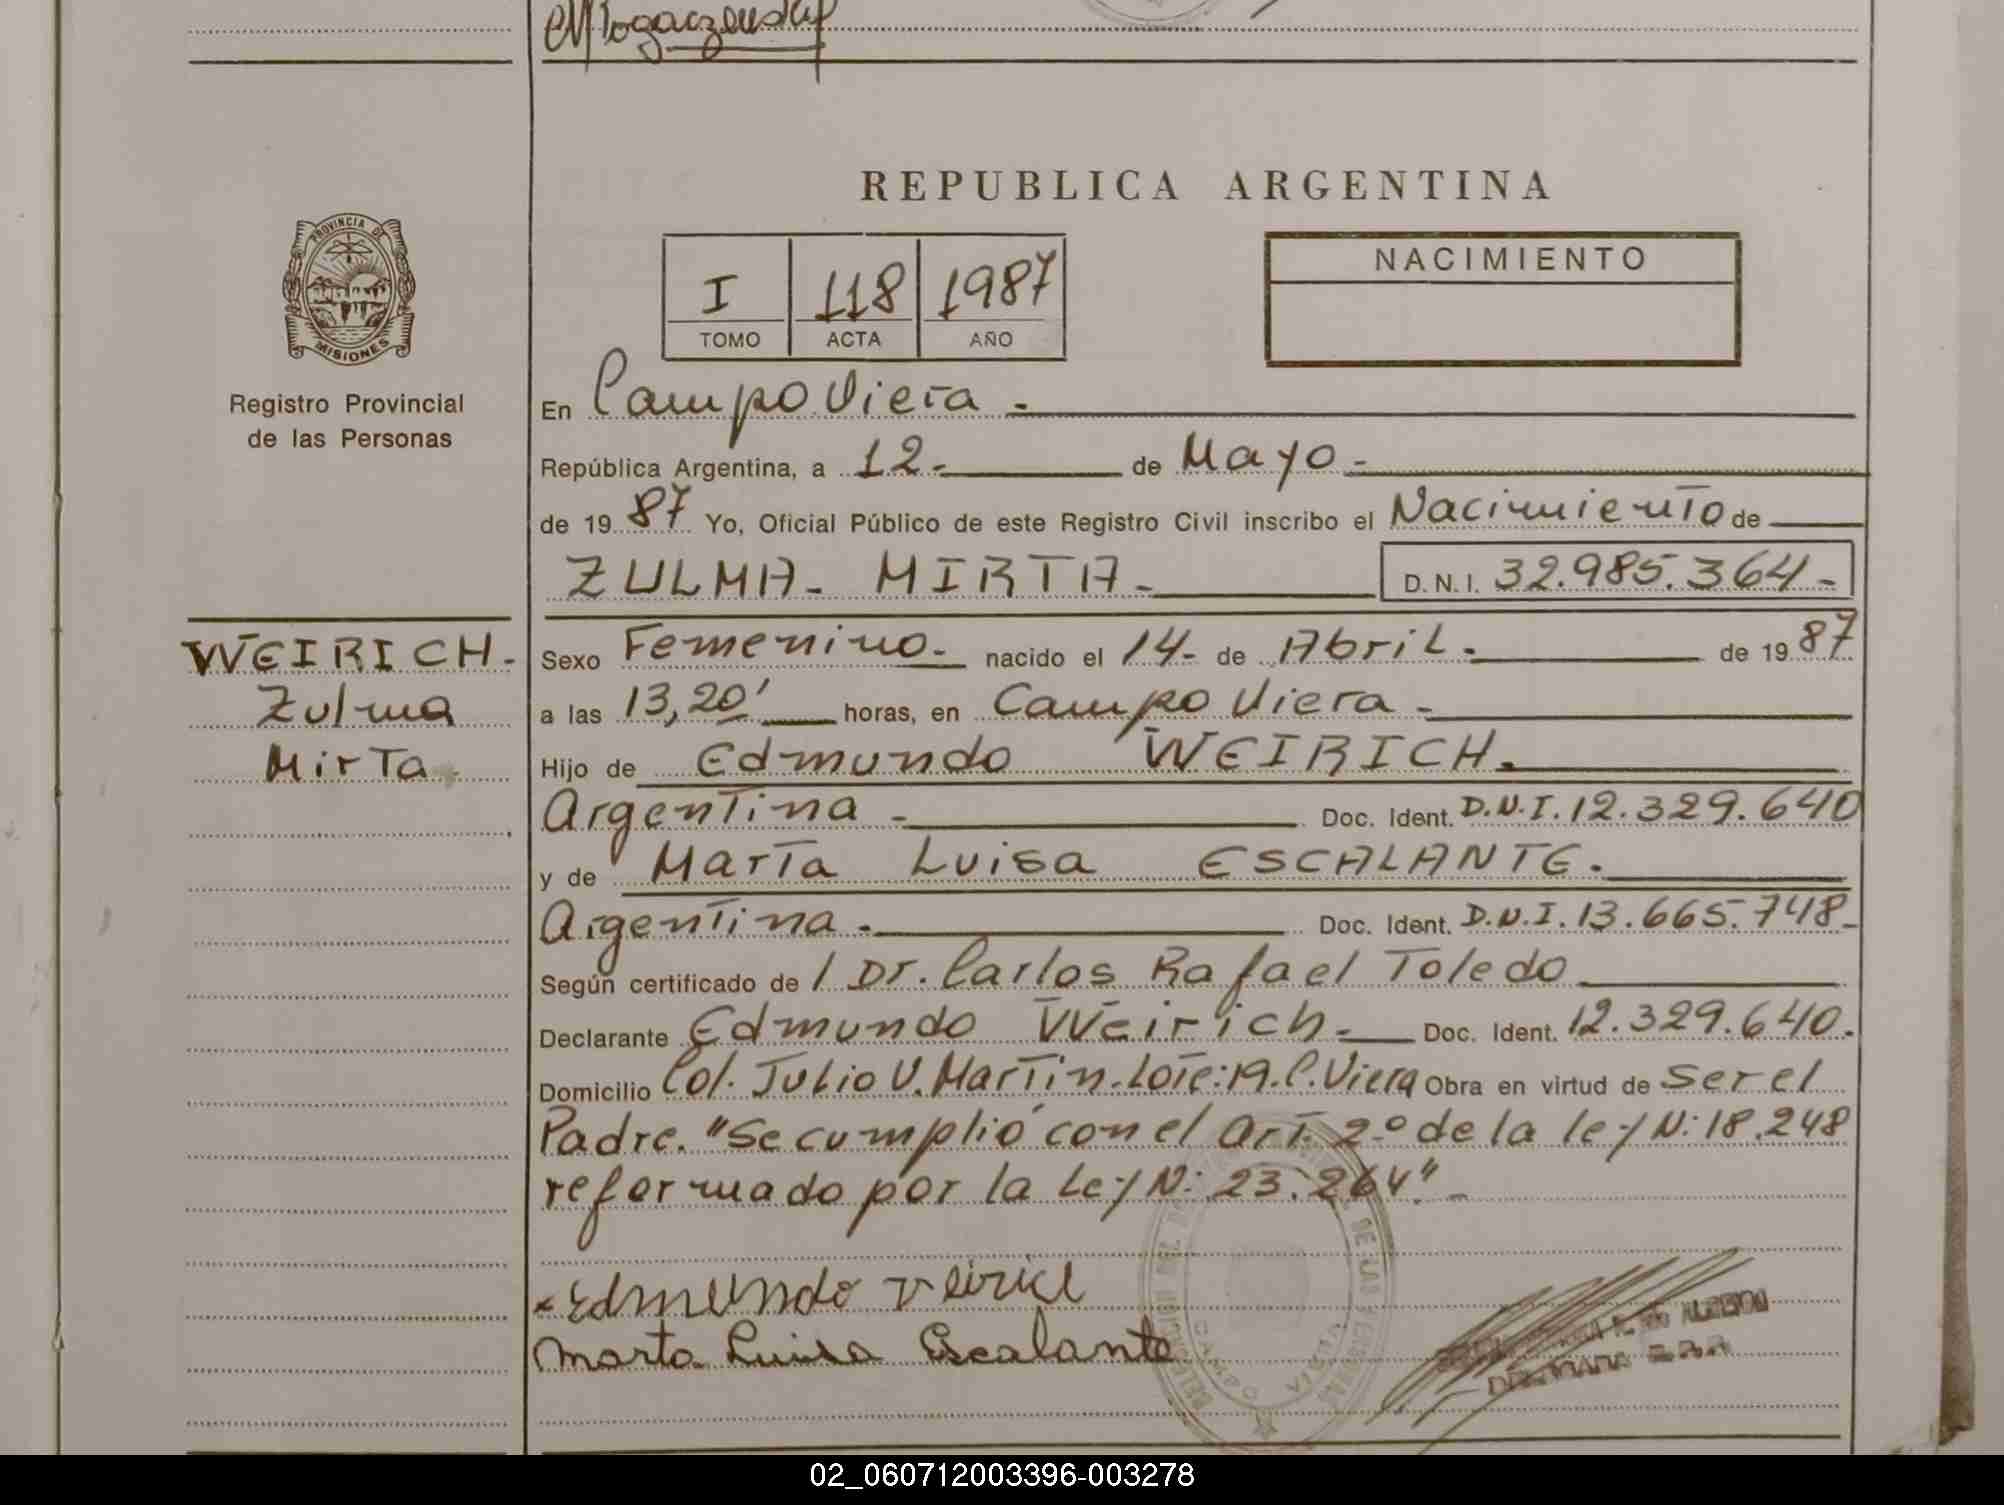 REPUBLICA ARGENTINA
PROVINCIA DE
MISIONES
Registro Provincial
de las Personas
I 118 1987
TOMO ACTA AÑO
NACIMIENTO
En Campo Viera -
República Argentina, a 12- de Mayo -
de 19 87 Yo, Oficial Público de este Registro Civil inscribo el Nacimiento de
ZULMA- MIRTA- D.N.I. 32.985.364-
WEIRICH-
Zulma
Mirta
Sexo Femenino- nacido el 14- de Abril. de 19 87
a las 13,20' horas, en Campo Viera -
Hijo de Edmundo WEIRICH.
Argentina - Doc. Ident. D.N.I. 12.329.640
y de Marta Luisa ESCALANTE.
Argentina - Doc. Ident. D.N.I. 13.665.748-
Según certificado de / Dr. Carlos Rafael Toledo
Declarante Edmundo Weirich- Doc. Ident. 12.329.640.
Domicilio Col. Julio U. Martin. Lote: 19. C. Viera Obra en virtud de ser el
Padre. "Se cumplió con el Art. 2º de la ley N: 18.248
reformado por la Ley N: 23.264" -
Edmundo Weirich
Marta Luisa Escalante
CAMPO VIERA
02_060712003396-003278